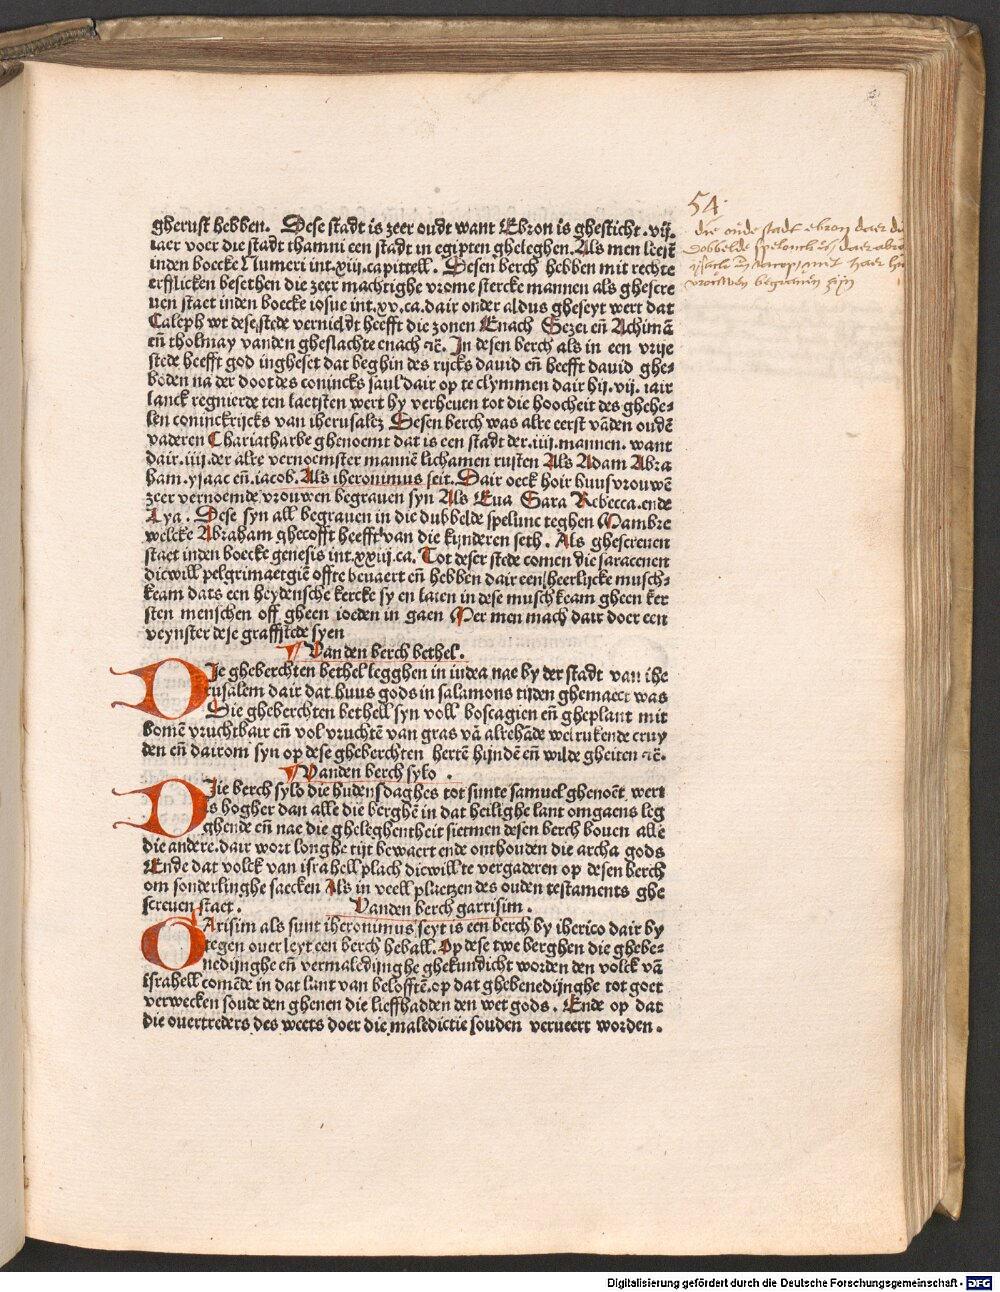 gherust hebben. Dese stadt is zeer oudt want Ebron is ghesticht .vij.
iaer voer die stadt thamni een stadt in egipten gheleghen. Als men leest
inden boecke Numeri int.xiij.capittell. Desen berch hebben mit rechte
erfflicken besethen die zeer machtighe vrome stercke mannen als ghescre
uen staet inden boecke iosue int.xv.ca.dair onder aldus gheseyt wert dat
Caleph wt dese stede vernieldt heefft die zonen Enach Sezei en̄ Achimā
en̄ tholmay vanden gheslachte enach ⁊c̄. In desen berch als in een vrije
stede heefft god ingheset dat beghin des rijcks dauid en̄ heefft dauid ghe⸗
boden na der doot des conincks saul dair op te clymmen dair hij .vij. iair
lanck regnierde ten laetsten wert hy verheuen tot die hoocheit des ghehe⸗
len coninckrijcks van iherusalez Desen berch was alre eerst vāden oudē
vaderen Chariatharbe ghenoemt dat is een stadt der .iiij.mannen. want
dair .iiij.der alre vernoemster mannē lichamen rusten Als Adam Abra
ham.ysaac en̄.iacob. Als iheronimus seit. Dair oeck hoir huusvrouwen
zeer vernoemde vrouwen begrauen syn Als Eua Sara Rebecca.ende
Lya. Dese syn all begrauen in die dubbelde spelunc teghen Mambre
welcke Abraham ghecofft heefft van die kijnderen seth. Als ghescreuen
staet inden boecke genesis int.xxiij.ca. Tot deser stede comen die saracenen
dicwill pelgrimaetgiē offte beuaert en̄ hebben dair een heerlijcke musch⸗
keam dats een heydensche kercke sy en laten in dese muschkeam gheen ker
sten menschen off gheen ioeden in gaen Mer men mach dair doer een
veynster dese graffstede syen
Van den berch bethel.
Die gheberchten bethel legghen in iudea nae by der stadt van ihe
rusalem dair dat huus gods in salamons tijden ghemaect was
Die gheberchten bethell syn voll boscagien en̄ gheplant mit
bomē vruchtbair en̄ vol vruchtē van gras vā alrehāde welrukende cruy
den en̄ dairom syn op dese gheberchten hertē hijndē en̄ wilde gheiten ⁊c̄.
Vanden berch sylo .
Die berch sylo die hudensdaghes tot sunte samuel ghenoēt wert
is hogher dan alle die berghē in dat heilighe lant omgaens leg
ghende en̄ nae die gheleghentheit siet men desen berch bouen alle
die andere.dair wort longhe tijt bewaert ende onthouden die archa gods
Ende dat volck van israhell plach dicwill te vergaderen op desen berch
om sonderlinghe saecken Als in veell plaetzen des ouden testaments ghe
screuen staet.
Vanden berch garrisim.
Garisim als sunt iheronimus seyt is een berch by iherico dair by
tegen ouer leyt een berch heball. Op dese twe berghen die ghebe⸗
nedijnghe en̄ vermaledijnghe ghekundicht worden den volck vā
israhell comēde in dat lant van belofftē.op dat ghebenedijnghe tot goet
verwecken soude den ghenen die lieff hadden den wet gods. Ende op dat
die ouertreders des weets doer die maledictie souden verueert worden.
54
die oude stadt ebron daer di
dobbelde speloncke is daer abra
vrouwen begrauen zijn
Digitalisierung gefördert durch die Deutsche Forschungsgemeinschaft - DFG